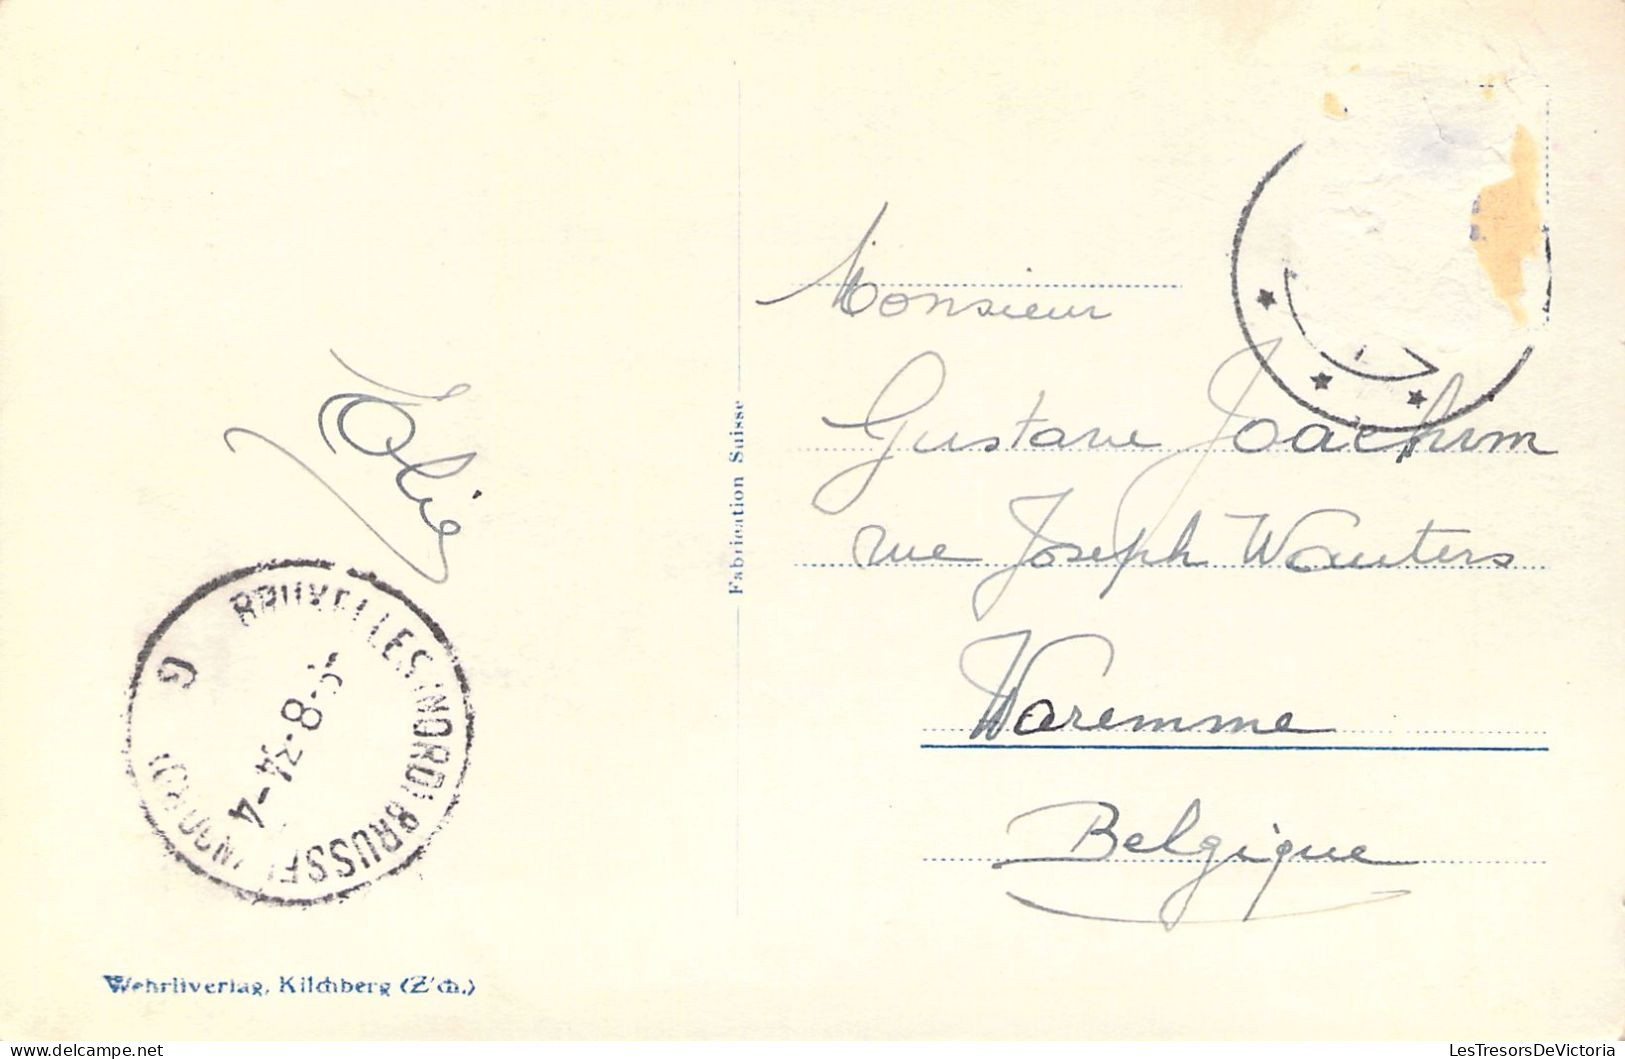 Monsieur
Gustave Joachim
rue Joseph Wauters
Waremme
Belgique
Fabrication Suisse
BRUXELLES (NORD) BRUSSEL (NOORD)
G
Wehrliverlag, Kilchberg (Z'ch.)
LesTresorsDeVictoria